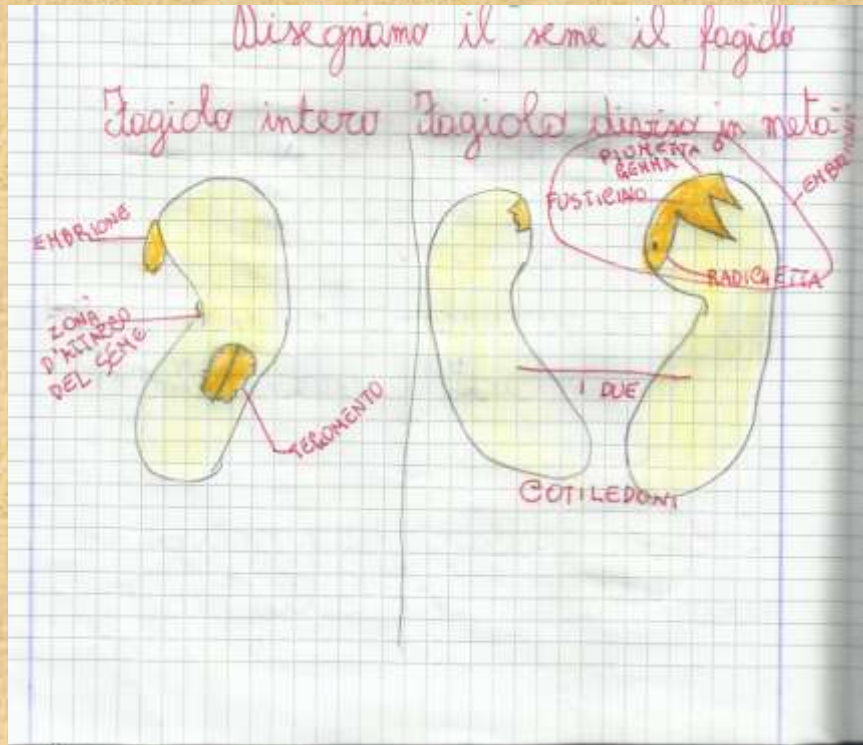 Disegniamo il seme il fagiolo
Fagiolo intero Fagiolo diviso in metà
EMBRIONE
ZONA
D'ATTACCO
DEL SEME
TEGOMENTO
PIUMETTA O
GEMMA
FUSTICINO
RADICHETTA
I DUE
COTILEDONI